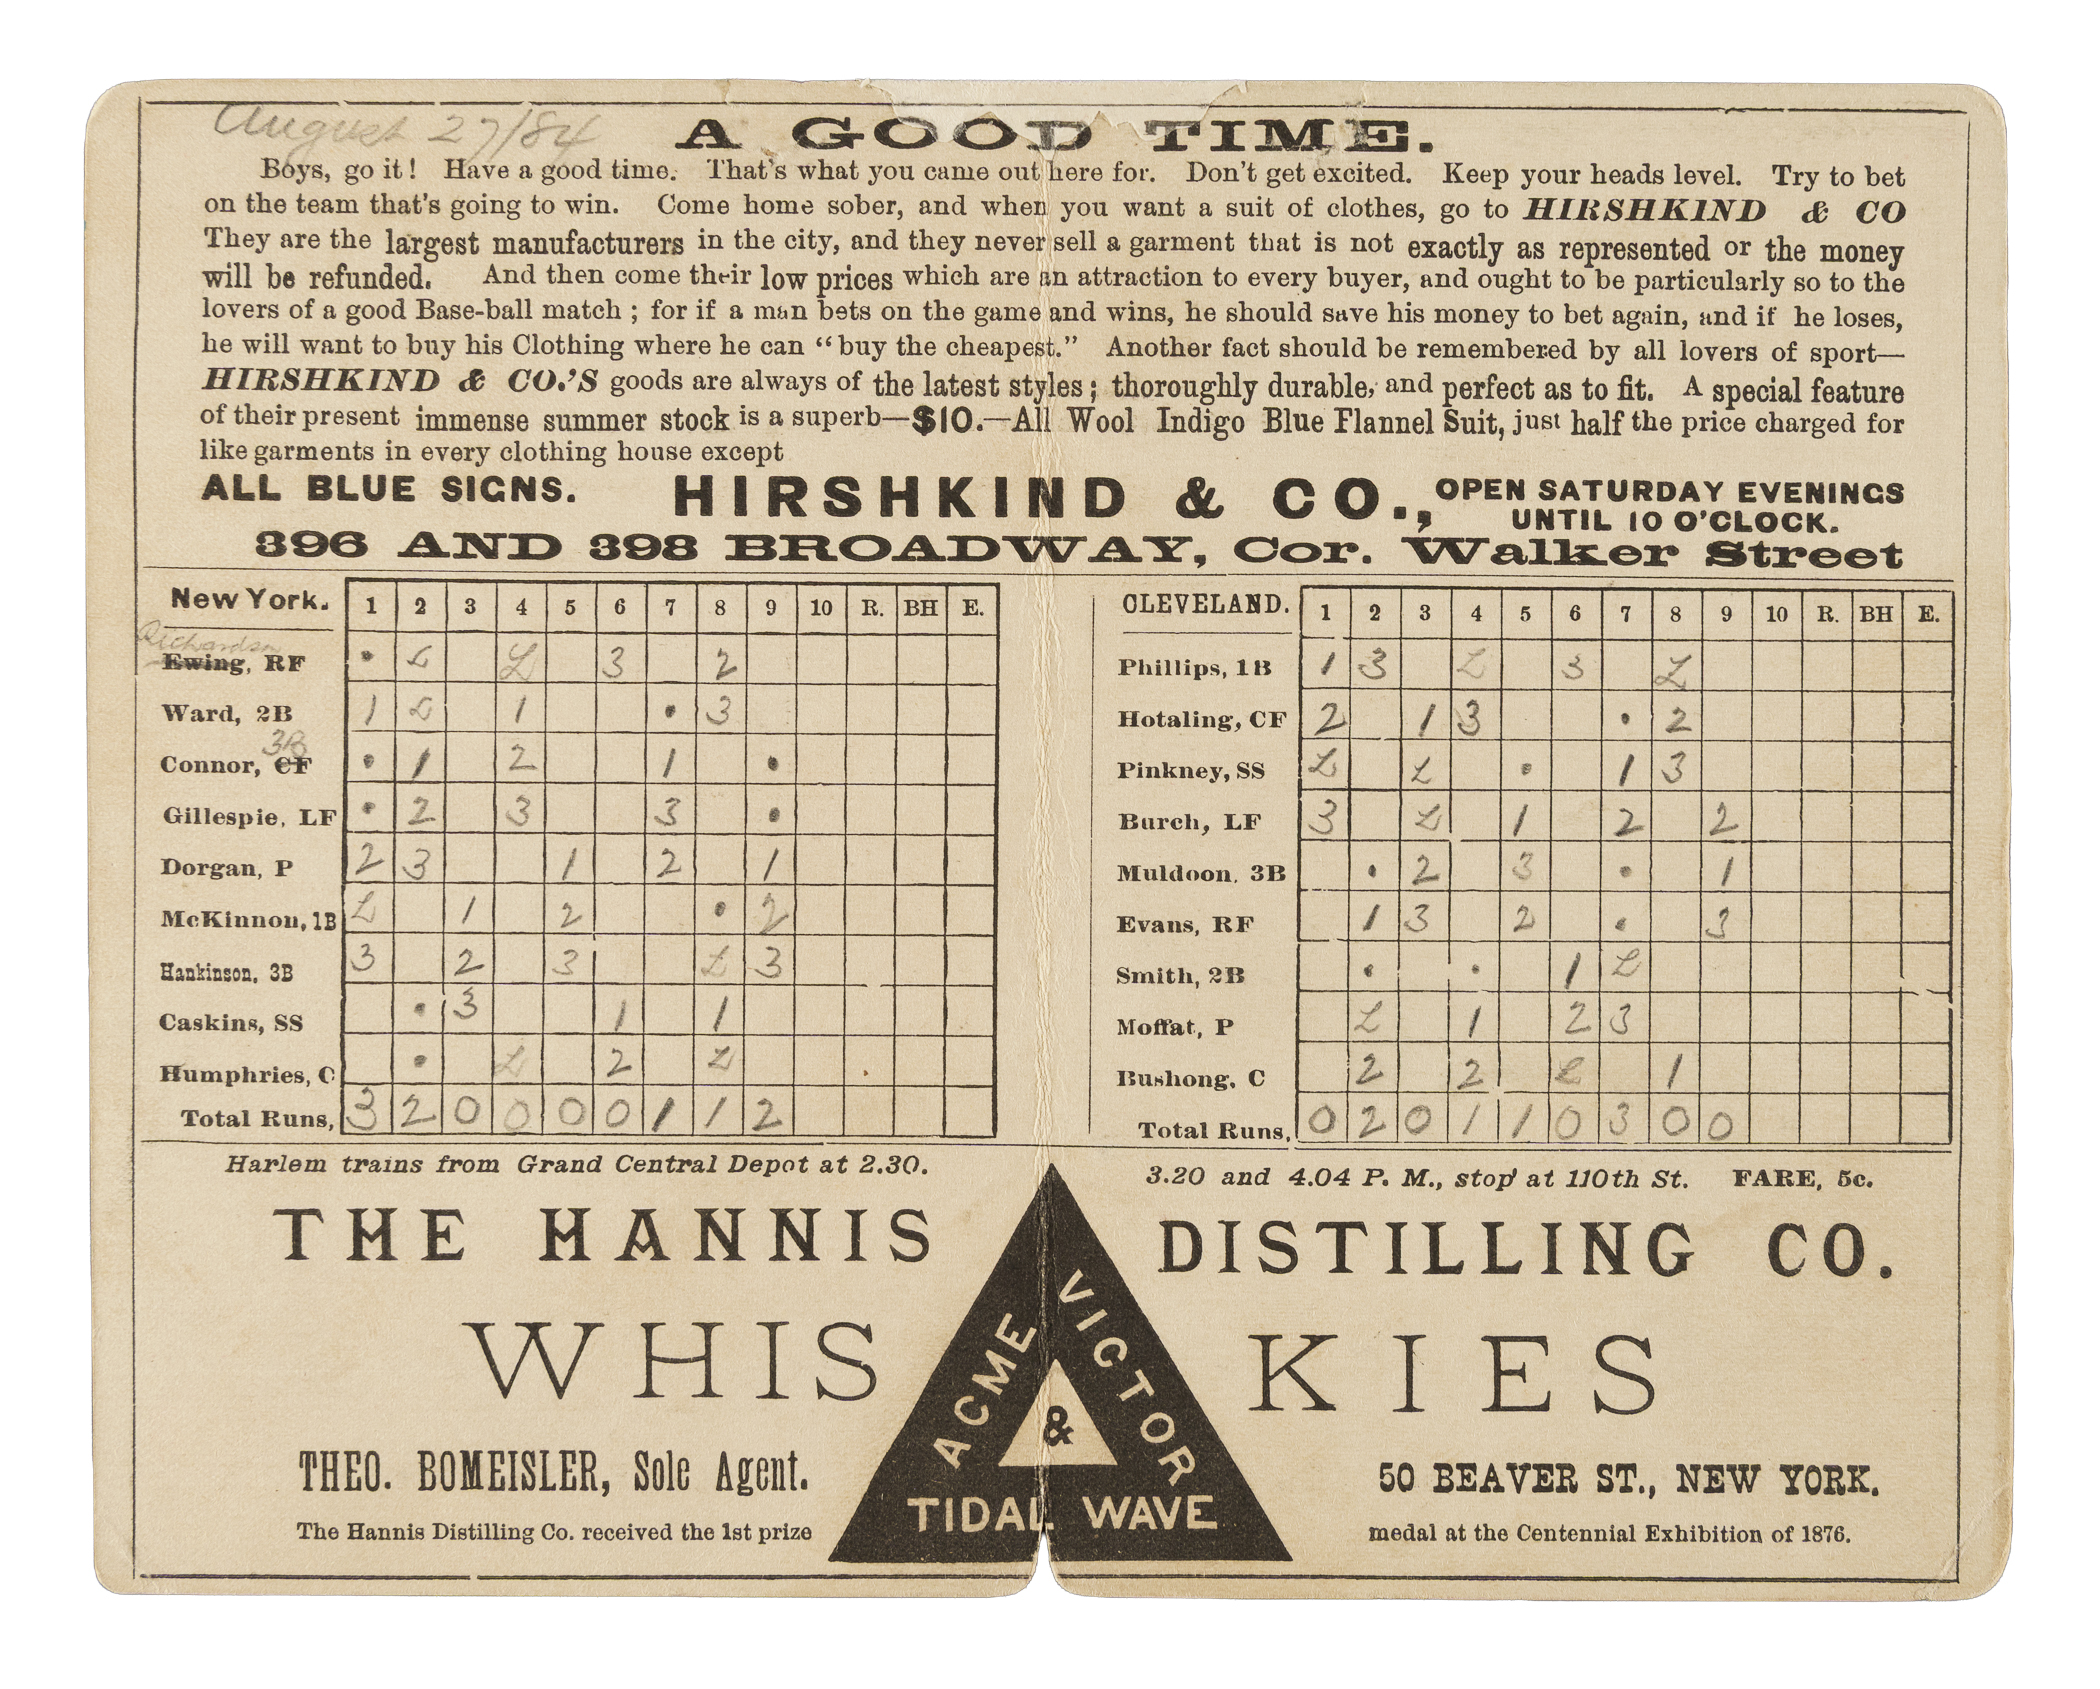 August 27/84
A GOOD TIME.
Boys, go it! Have a good time. That's what you came out here for. Don't get excited. Keep your heads level. Try to bet
on the team that's going to win. Come home sober, and when you want a suit of clothes, go to HIRSHKIND & CO
They are the largest manufacturers in the city, and they never sell a garment that is not exactly as represented or the money
will be refunded. And then come their low prices which are an attraction to every buyer, and ought to be particularly so to the
lovers of a good Base-ball match; for if a man bets on the game and wins, he should save his money to bet again, and if he loses,
he will want to buy his Clothing where he can "buy the cheapest." Another fact should be remembered by all lovers of sport—
HIRSHKIND & CO.'S goods are always of the latest styles; thoroughly durable, and perfect as to fit. A special feature
of their present immense summer stock is a superb—$10.—All Wool Indigo Blue Flannel Suit, just half the price charged for
like garments in every clothing house except
ALL BLUE SIGNS. HIRSHKIND & CO., OPEN SATURDAY EVENINGS
UNTIL 10 O'CLOCK.
396 AND 398 BROADWAY, Cor. Walker Street
New York. 1 2 3 4 5 6 7 8 9 10 R. BH E.
Richardson
Ewing, RF • L L 3 2
Ward, 2B 1 L 1 • 3
3B
Connor, CF • 1 2 1 •
Gillespie, LF • 2 3 3 •
Dorgan, P 2 3 1 2 1
McKinnon, 1B L 1 2 • 2
Hankinson, 3B 3 2 3 L 3
Caskins, SS • 3 1 1
Humphries, C • L 2 L
Total Runs, 3 2 0 0 0 0 1 1 2
CLEVELAND. 1 2 3 4 5 6 7 8 9 10 R. BH E.
Phillips, 1B 1 3 L 3 L
Hotaling, CF 2 1 3 • 2
Pinkney, SS L L • 1 3
Burch, LF 3 L 1 2 2
Muldoon, 3B • 2 3 • 1
Evans, RF 1 3 2 • 3
Smith, 2B • • 1 L
Moffat, P L 1 2 3
Bushong, C 2 2 L 1
Total Runs, 0 2 0 1 1 0 3 0 0
Harlem trains from Grand Central Depot at 2.30. 3.20 and 4.04 P. M., stop at 110th St. FARE, 5c.
THE HANNIS DISTILLING CO.
WHISKIES
ACME VICTOR
&
TIDAL WAVE
THEO. BOMEISLER, Sole Agent. 50 BEAVER ST., NEW YORK.
The Hannis Distilling Co. received the 1st prize medal at the Centennial Exhibition of 1876.